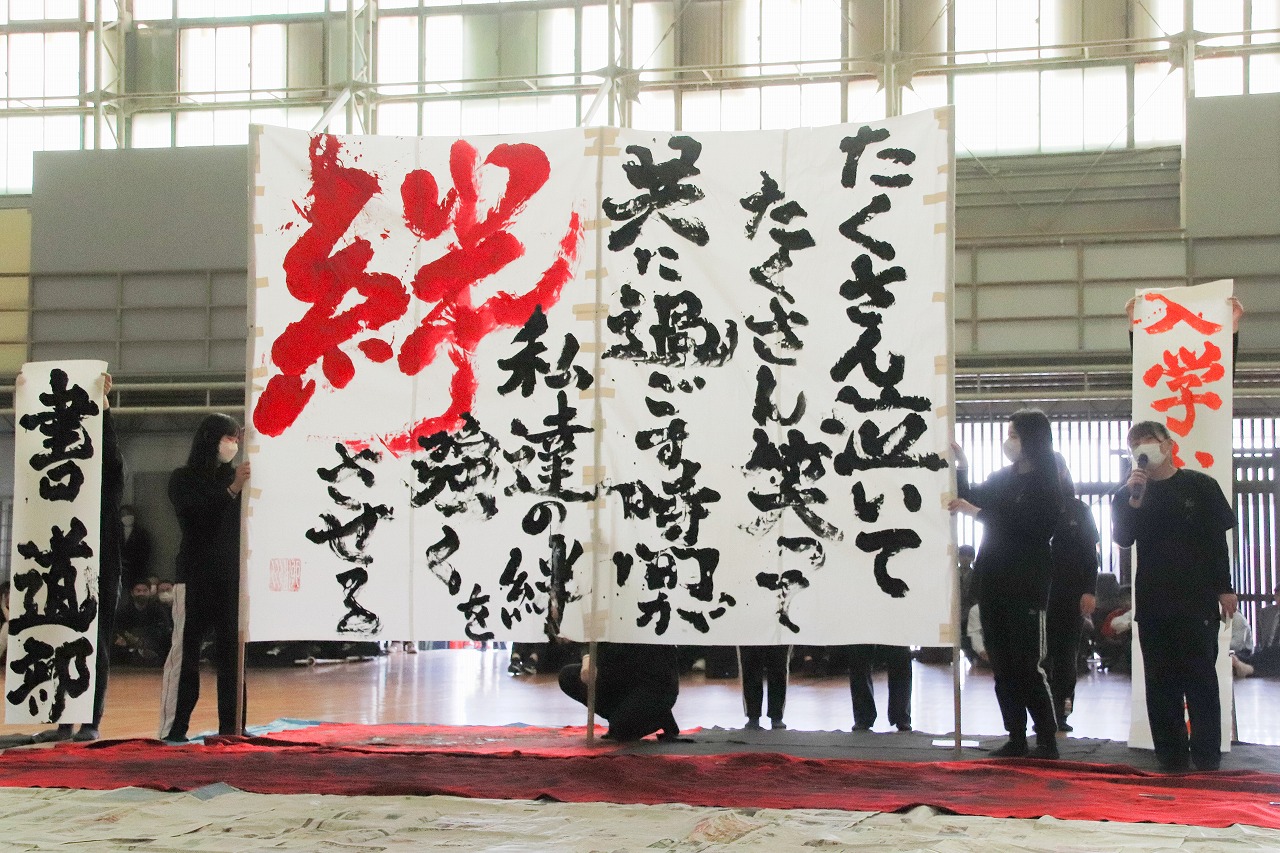 入学
たくさん泣いて
たくさん笑って
共に過ごす時間が
私達の絆を
強くさせる
絆
書道部